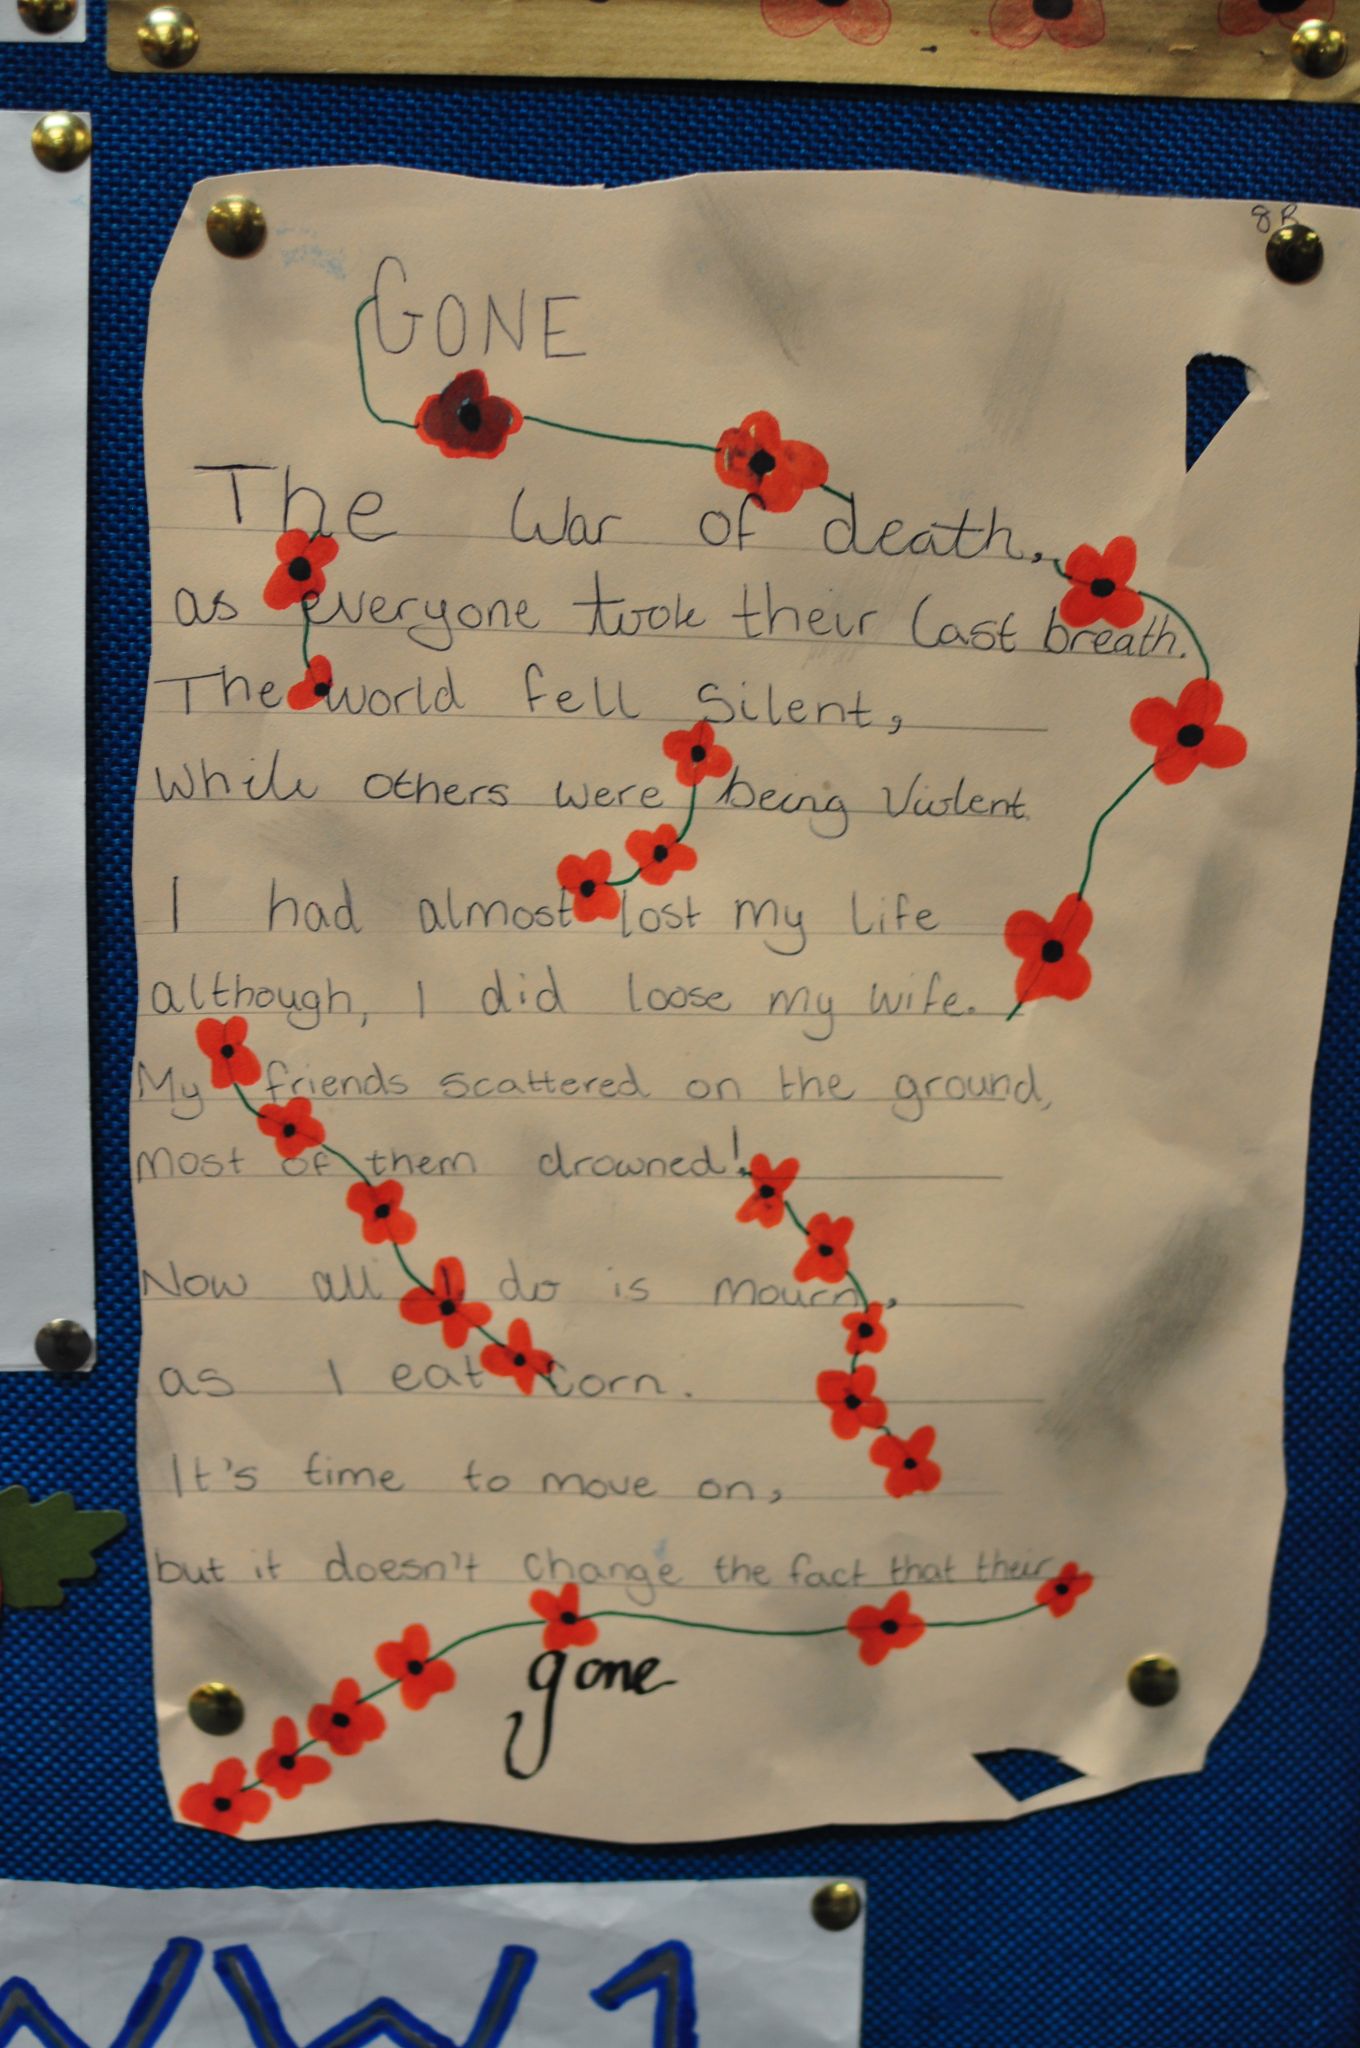 8R
GONE
The War of death,
as everyone took their last breath.
The world fell Silent,
While others were being Violent.
I had almost lost my life
although, I did loose my wife.
My friends scattered on the ground,
most of them drowned!
Now all I do is mourn,
as I eat corn.
It's time to move on,
but it doesn't change the fact that their
gone
WW1